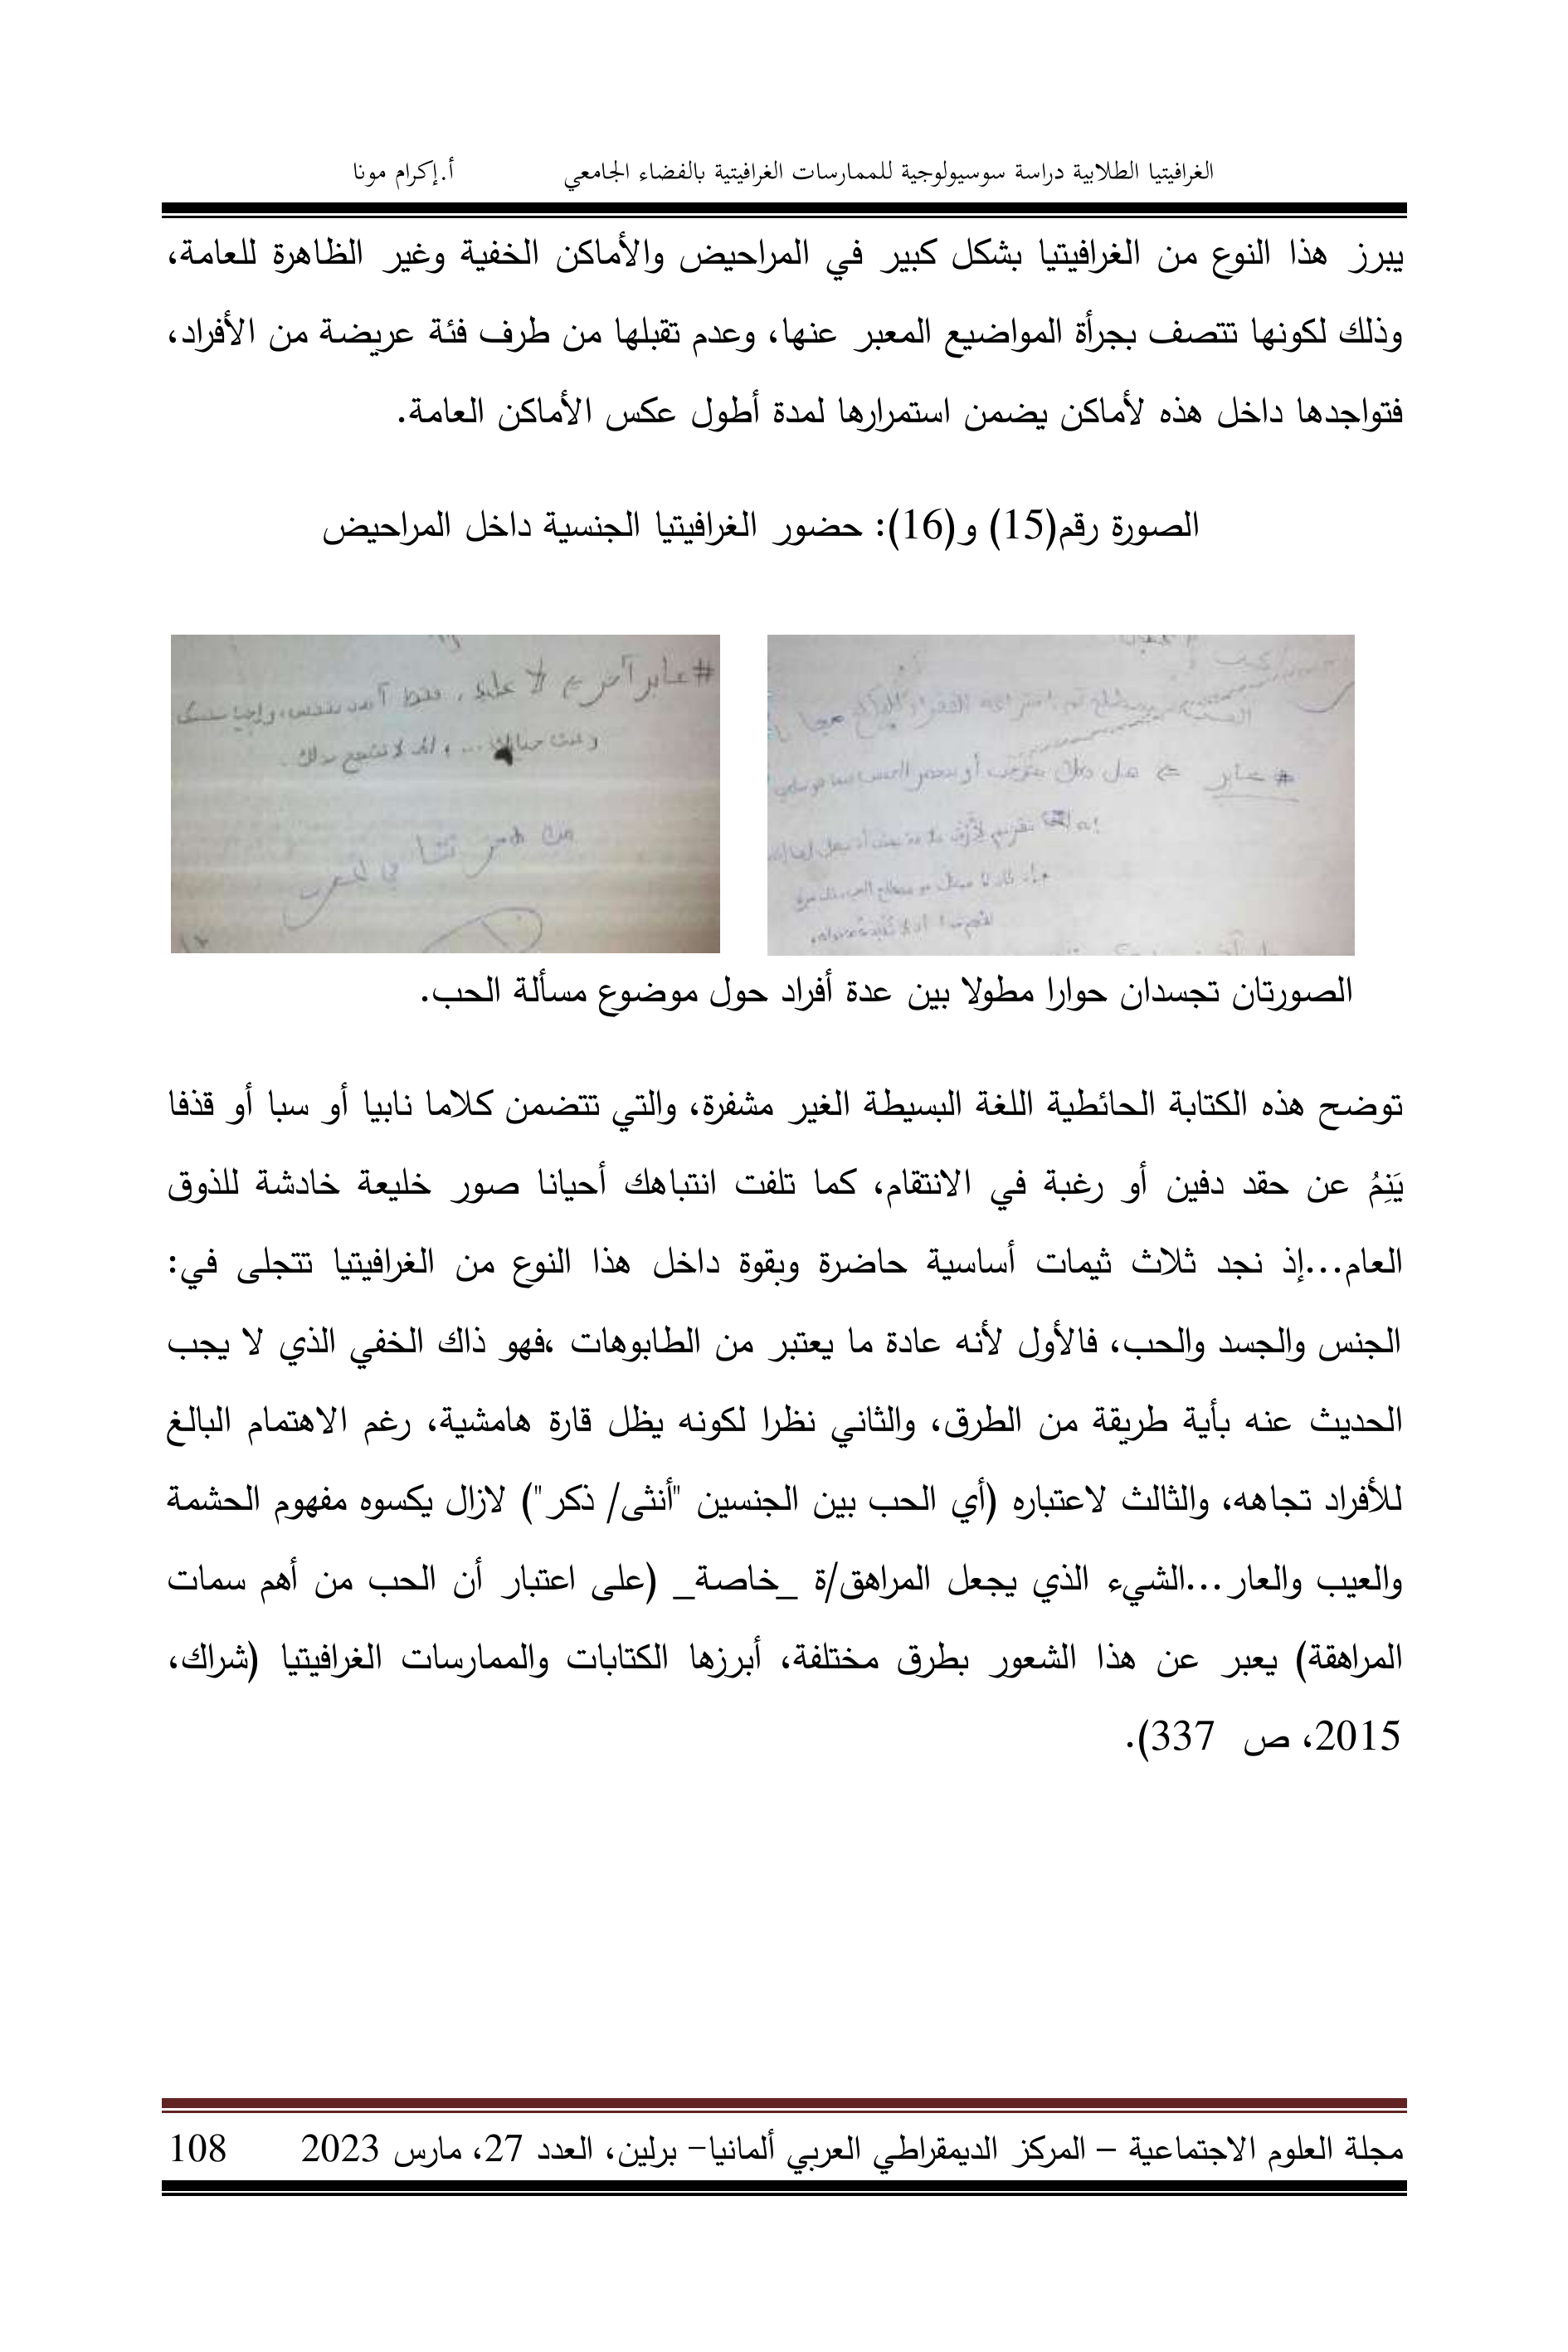 الغرافيتيا الطلابية دراسة سوسيولوجية للممارسات الغرافيتية بالفضاء الجامعي أ.إكرام مونا
يبرز هذا النوع من الغرافيتيا بشكل كبير في المراحيض والأماكن الخفية وغير الظاهرة للعامة،
وذلك لكونها تتصف بجرأة المواضيع المعبر عنها، وعدم تقبلها من طرف فئة عريضة من الأفراد،
فتواجدها داخل هذه لأماكن يضمن استمرارها لمدة أطول عكس الأماكن العامة.
الصورة رقم(15) و(16): حضور الغرافيتيا الجنسية داخل المراحيض
# عابر
هل
# عابر آخر
لا
فقط
الصورتان تجسدان حوارا مطولا بين عدة أفراد حول موضوع مسألة الحب.
توضح هذه الكتابة الحائطية اللغة البسيطة الغير مشفرة، والتي تتضمن كلاما نابيا أو سبا أو قذفا
يَنِمُ عن حقد دفين أو رغبة في الانتقام، كما تلفت انتباهك أحيانا صور خليعة خادشة للذوق
العام...إذ نجد ثلاث ثيمات أساسية حاضرة وبقوة داخل هذا النوع من الغرافيتيا تتجلى في:
الجنس والجسد والحب، فالأول لأنه عادة ما يعتبر من الطابوهات ،فهو ذاك الخفي الذي لا يجب
الحديث عنه بأية طريقة من الطرق، والثاني نظرا لكونه يظل قارة هامشية، رغم الاهتمام البالغ
للأفراد تجاهه، والثالث لاعتباره (أي الحب بين الجنسين "أنثى/ ذكر") لازال يكسوه مفهوم الحشمة
والعيب والعار...الشيء الذي يجعل المراهق/ة _خاصة_ (على اعتبار أن الحب من أهم سمات
المراهقة) يعبر عن هذا الشعور بطرق مختلفة، أبرزها الكتابات والممارسات الغرافيتيا (شراك،
2015، ص 337).
مجلة العلوم الاجتماعية – المركز الديمقراطي العربي ألمانيا- برلين، العدد 27، مارس 2023 108